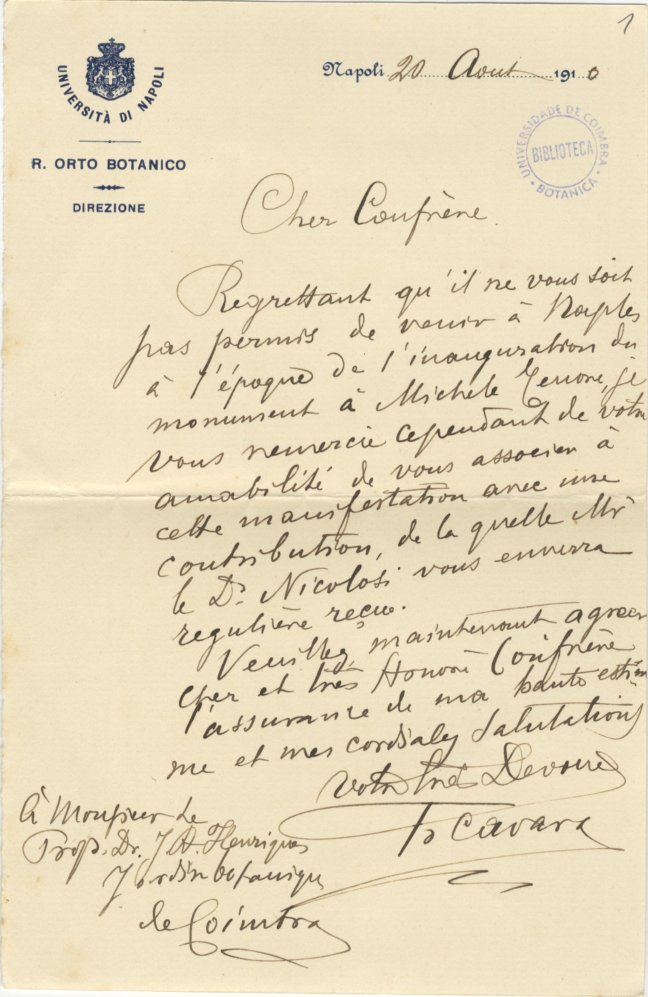 1
UNIVERSITÀ DI NAPOLI
R. ORTO BOTANICO
DIREZIONE
Napoli 20 Aout 1910
UNIVERSIDADE DE COIMBRA
BIBLIOTECA
BOTANICA
Cher Confrère
Regrettant qu'il ne vous soit
pas permis de venir à Naples
à l'époque de l'inauguration du
monument à Michele Tenore, je
vous remercie cependant de votre
amabilité de vous associer à
cette manifestation avec une
contribution, de la quelle Mr
le Dr. Nicolosi vous enverra
regulière reçue.
Veuillez maintenant agreer
cher et très Honoré Confrère
l'assurance de ma haute estî
me et mes cordiales Salutations
Votre très Devoué
F Cavara
À Monsieur le
Prof. Dr. J A. Henriques
Jardin botanique
de Coimbra